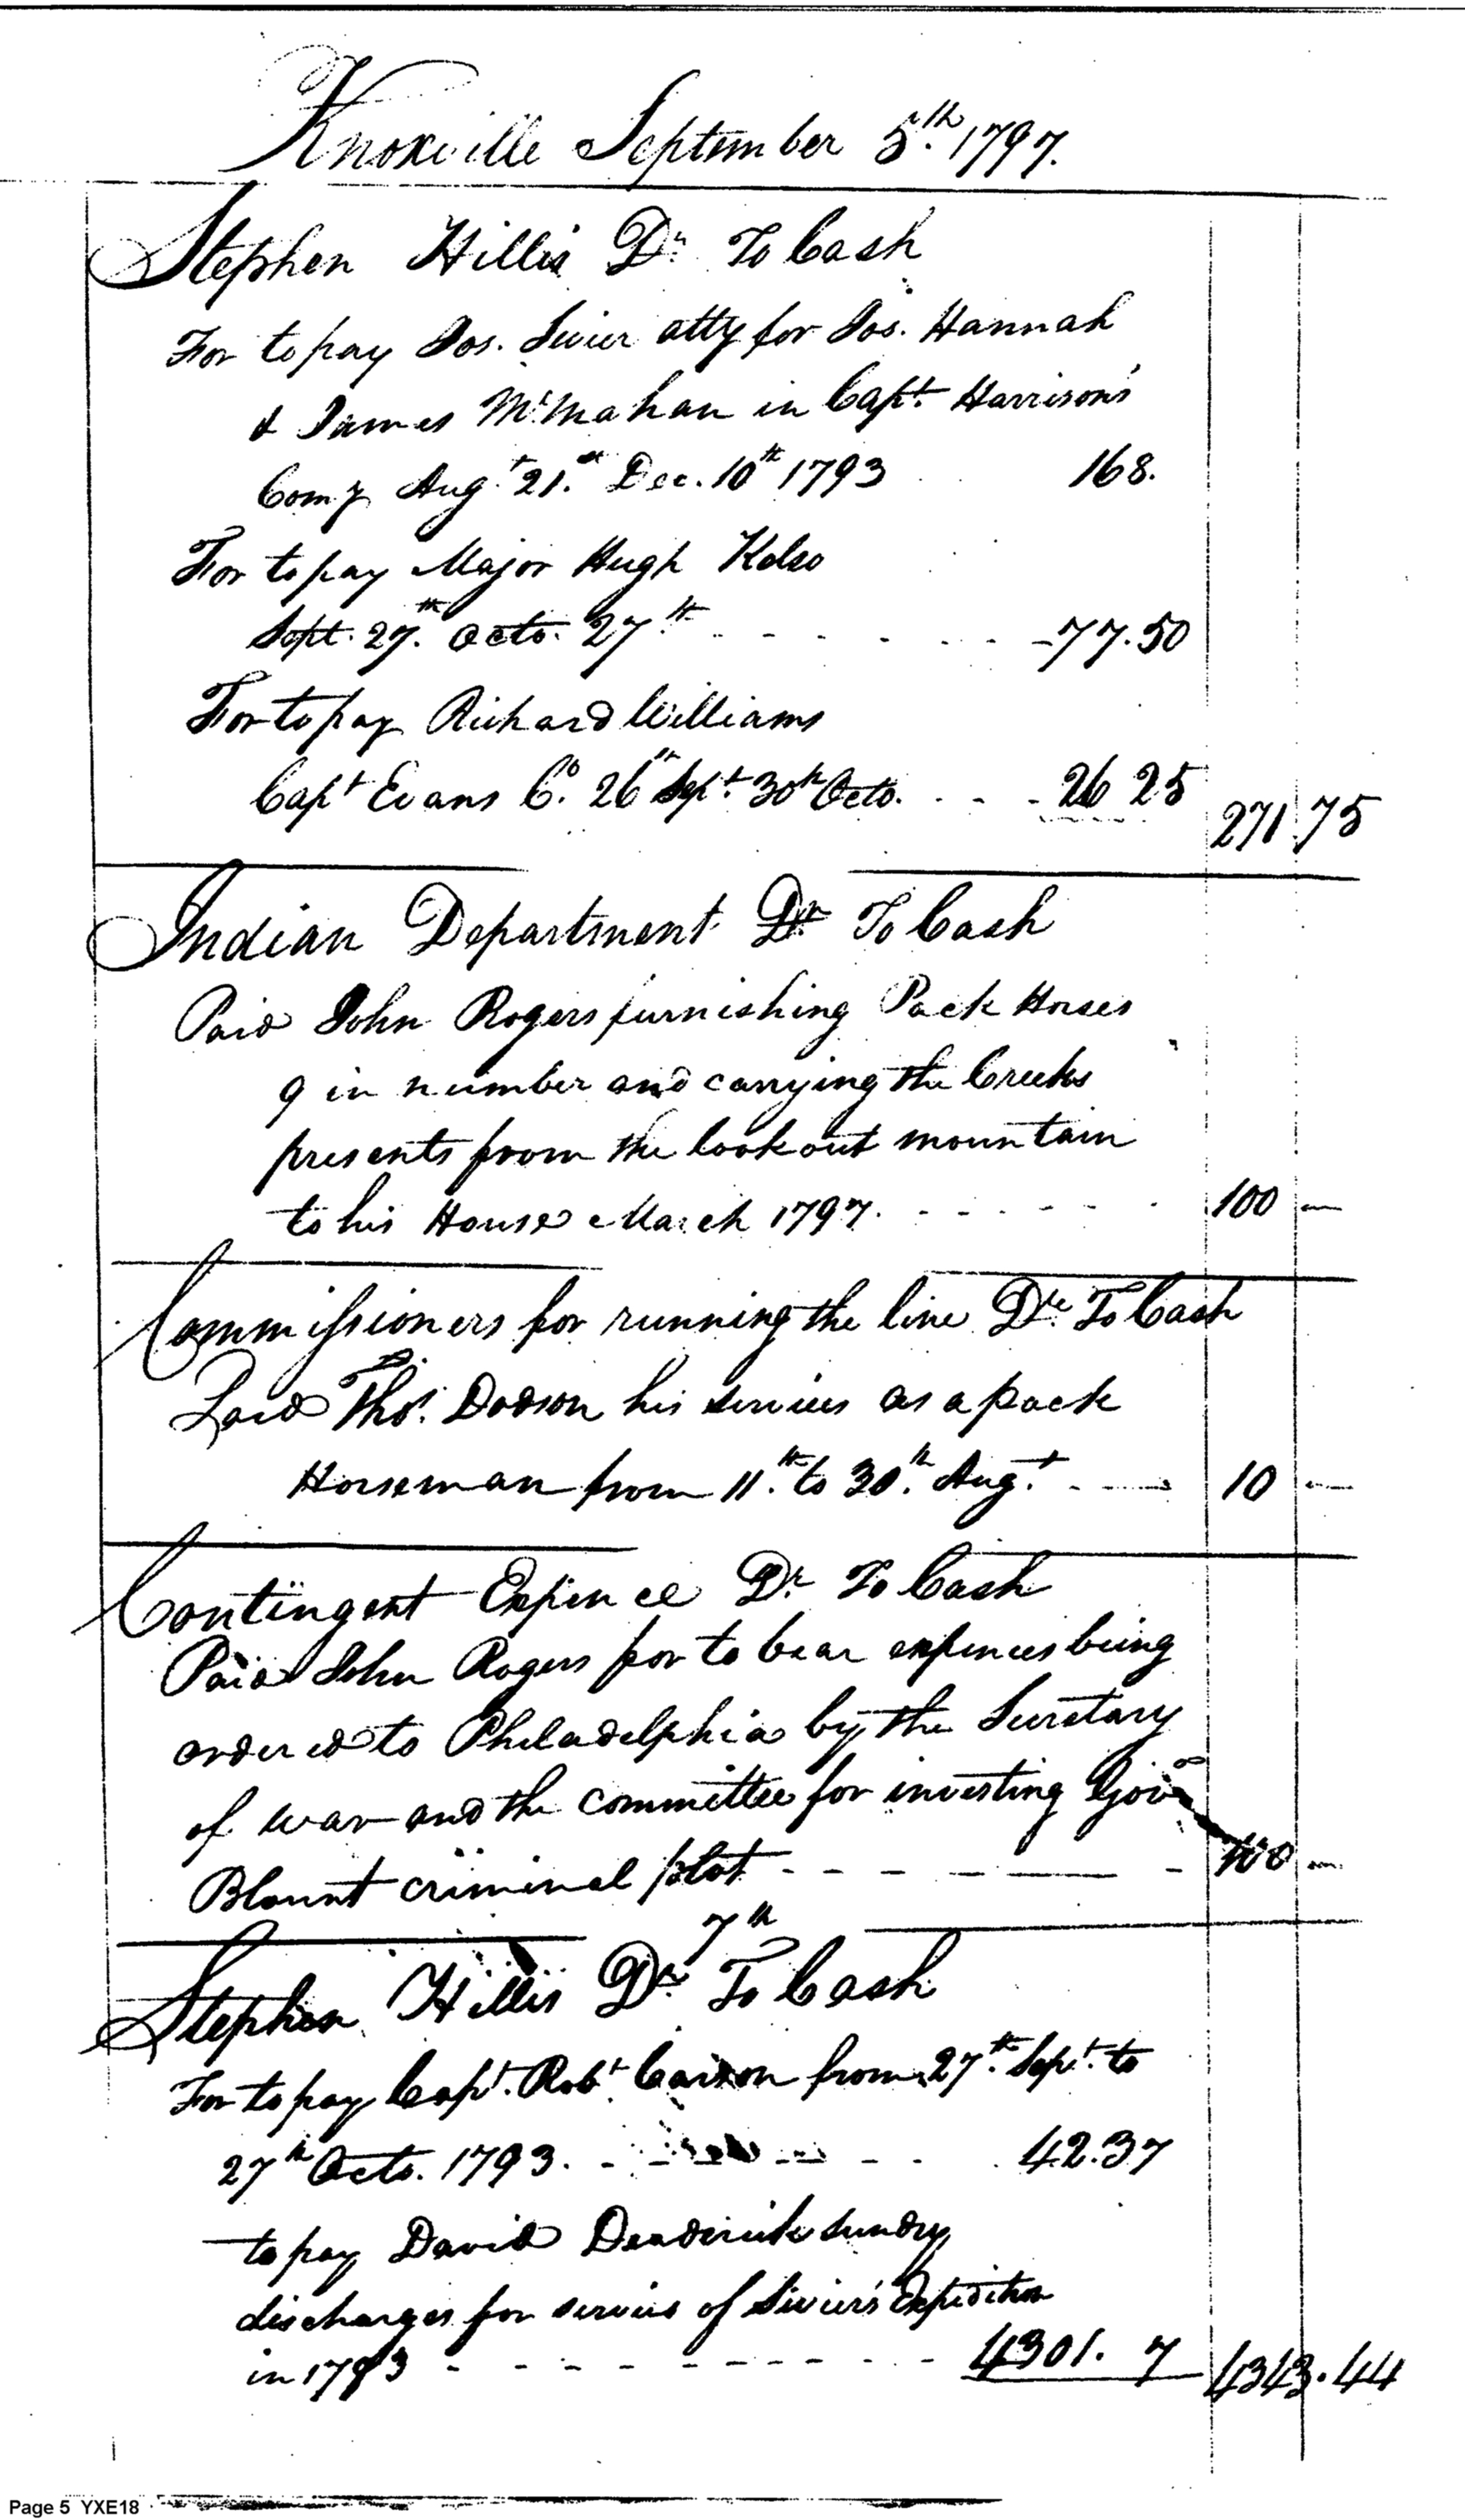 Knoxville September 5th. 1797.
Stephen Hillis Dr. To Cash
For to pay Jos. Sevier atty for Jos. Hannah
& James McMahan in Capt. Harrison's
Comy Augt. 21st. Dec. 10th 1793 168.
For to pay Major Hugh Kelso
Sept. 27th. Octo. 27th - - - - - - 77.50
For to pay Richard Williams
Capt Evans Co. 26th Sept. 30th Octo. - - - 26 25 271.75
Indian Department Dr To Cash
Paid John Rogers furnishing Pack Horses
9 in number and carrying the Creeks
presents from the lookout mountain
to his House March 1797. - - - - - - 100 —
Commissioners for running the line Dr. To Cash
Paid Thos. Dodson his services as a pack
Horseman from 11th. to 30th. Augt. - - - 10 —
Contingent Expence Dr. To Cash
Paid John Rogers for to bear expences being
ordered to Philadelphia by the Secretary
of war and the committee for investing Govo
Blount criminal plot - - - - - - - 100 —
7th
Stephen Hillis Dr. To Cash
For to pay Capt. Robt. Carson from 27th. Sept. to
27th Octo. 1793. - - - - - - 42.37
to pay David Deaderick sundry
discharges for servics of Sivier's Expedition
in 1793 - - - - - - - - - 4301. 7 4343.44
Page 5 YXE18